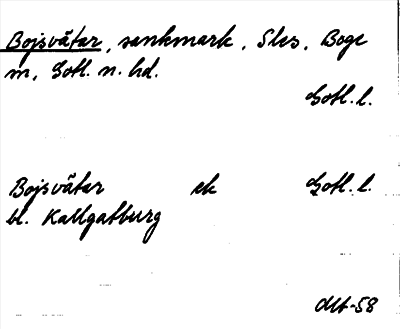 Bojsvätar, sankmark, Sles, Boge
m, Gotl. n. hd.
Gotl. l.
Bojsvätar ek Gotl. l.
bl. Kallgatburg